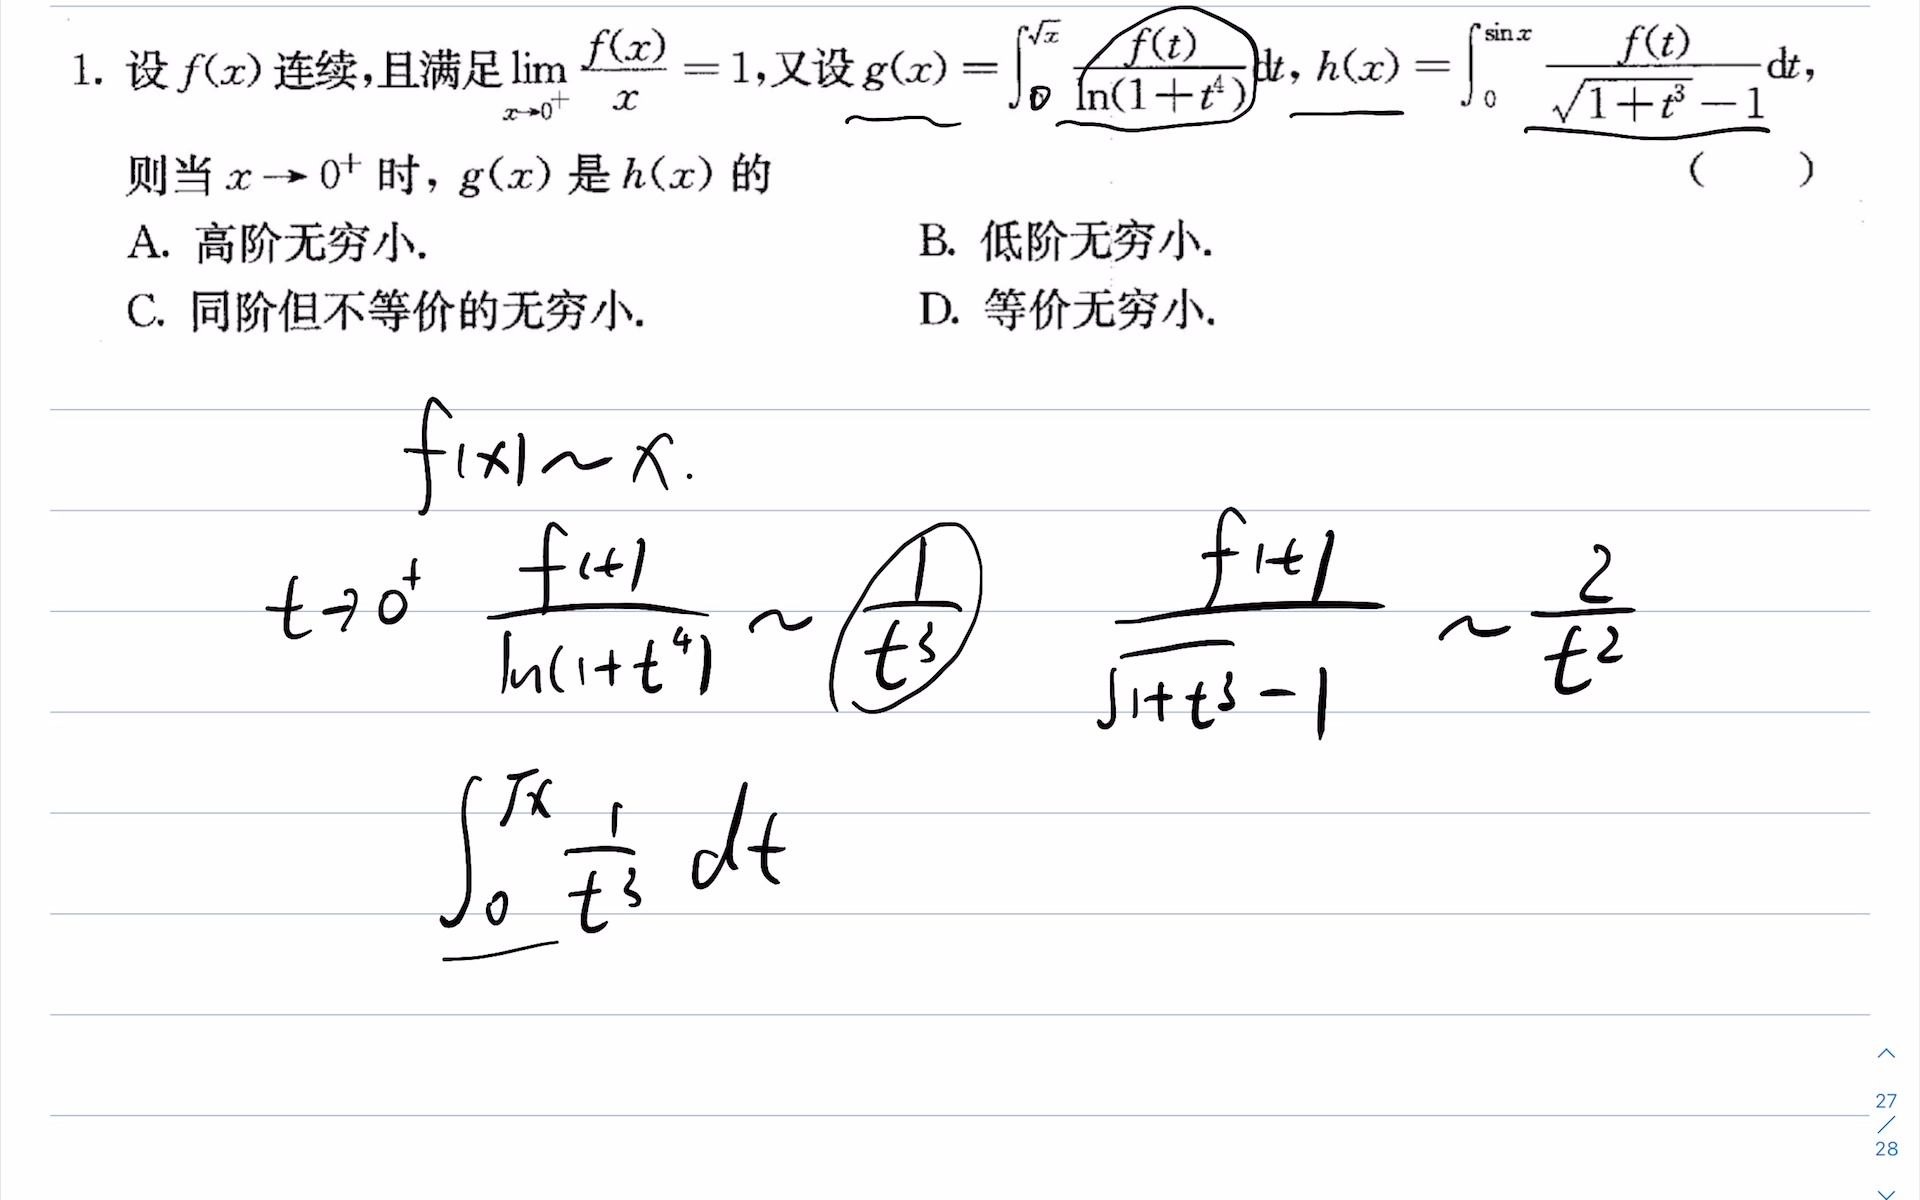 1. 设 f(x) 连续,且满足 lim_{x→0⁺} f(x)/x = 1,又设 g(x) = ∫_0^{√x} f(t)/ln(1+t⁴) dt, h(x) = ∫_0^{sin x} f(t)/(√(1+t³) − 1) dt,
则当 x → 0⁺ 时, g(x) 是 h(x) 的 ( )
A. 高阶无穷小. B. 低阶无穷小.
C. 同阶但不等价的无穷小. D. 等价无穷小.
f(x) ~ x.
t → 0⁺ f(t)/ln(1+t⁴) ~ 1/t³ f(t)/(√(1+t³) − 1) ~ 2/t²
∫_0^{√x} 1/t³ dt
27
/
28